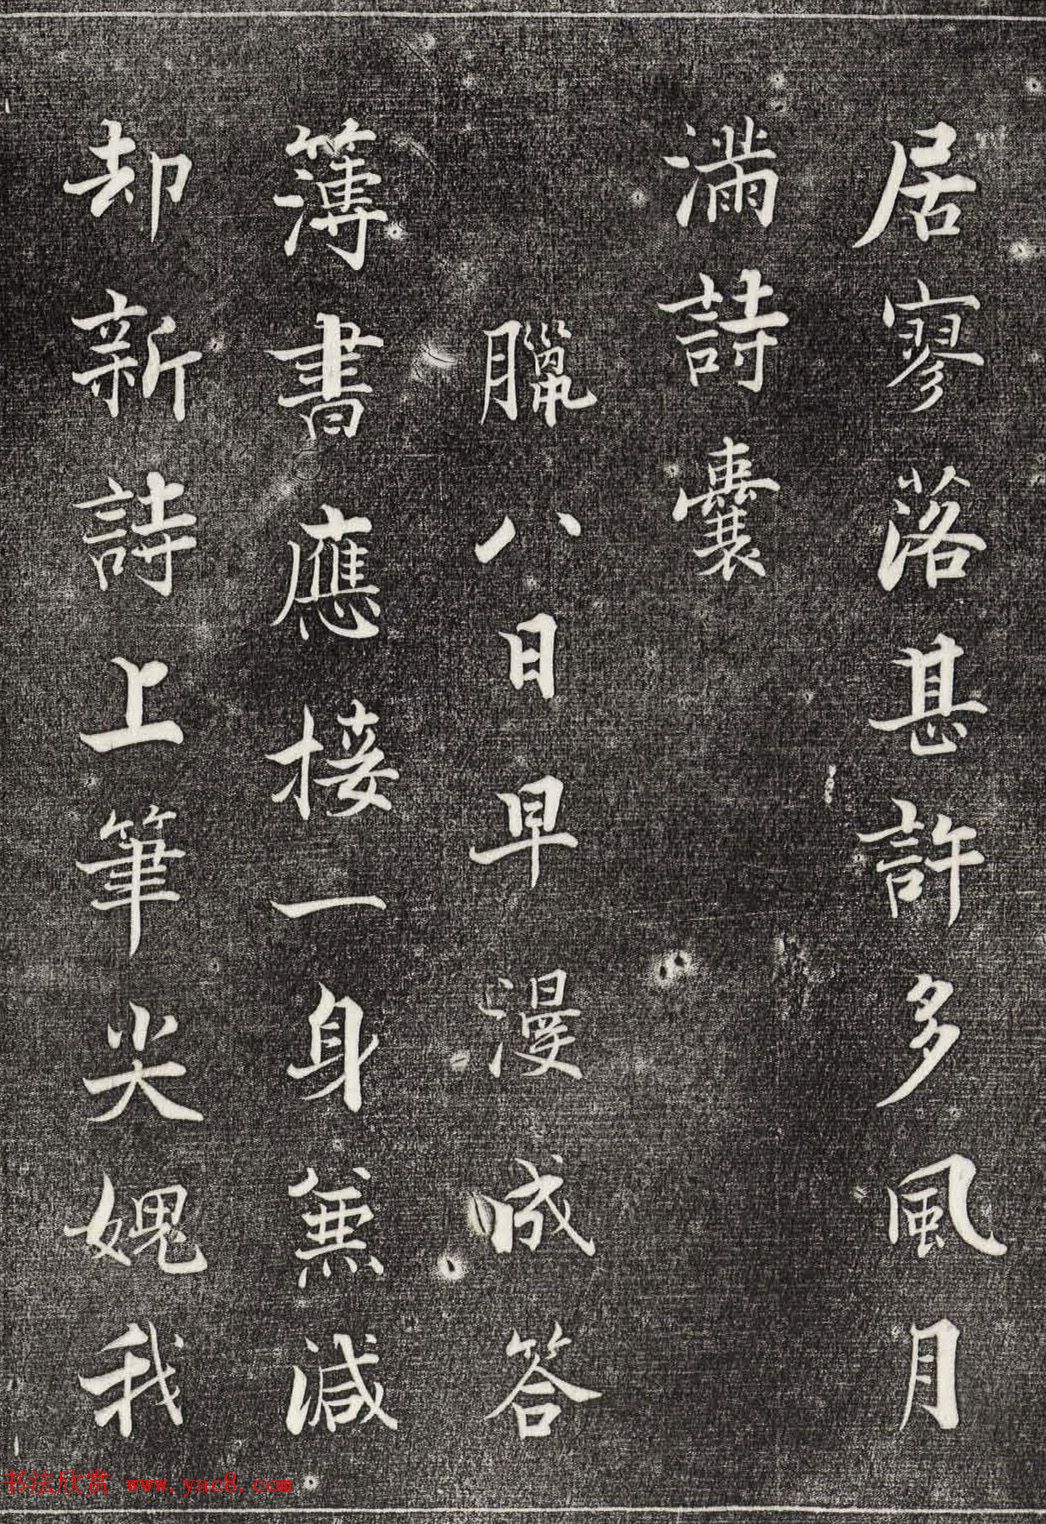 居寥落甚許多風月
滿詩囊
臘八日早漫成答
簿書應接一身無減
却新詩上筆尖媿我
书法欣赏 www.yac8.com